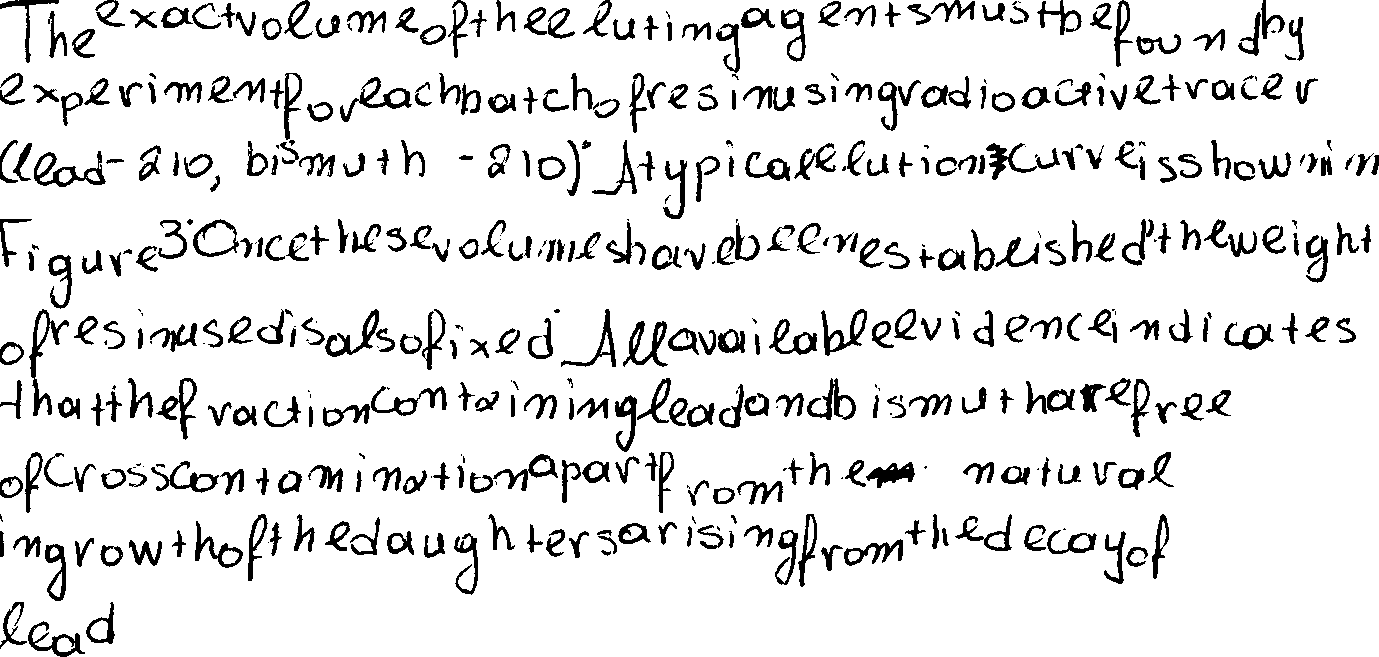 The exact volume of the eluting agents must be found by
experiment for each batch of resin using radioactive tracer
(lead-210, bismuth -210). A typical elution curve is shown in
Figure 3. Once these volumes have been established the weight
of resin used is also fixed. All available evidence indicates
that the fraction containing lead and bismuth are free
of cross contamination apart from the natural
ingrowth of the daughters arising from the decay of
lead